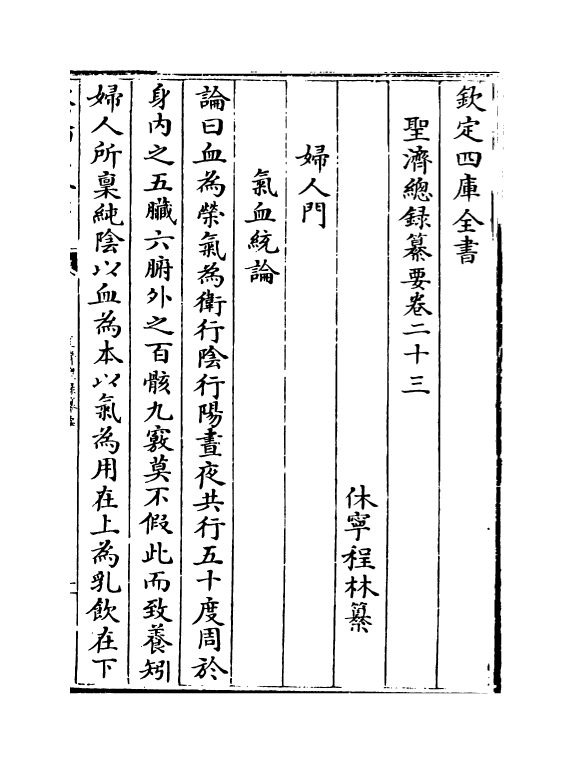 欽定四庫全書
聖濟總録纂要卷二十三
休寧程林纂
婦人門
氣血統論
論曰血為榮氣為衛行陰行陽晝夜共行五十度周於
身内之五臓六腑外之百骸九竅莫不假此而致養矧
婦人所稟純陰以血為本以氣為用在上為乳飲在下